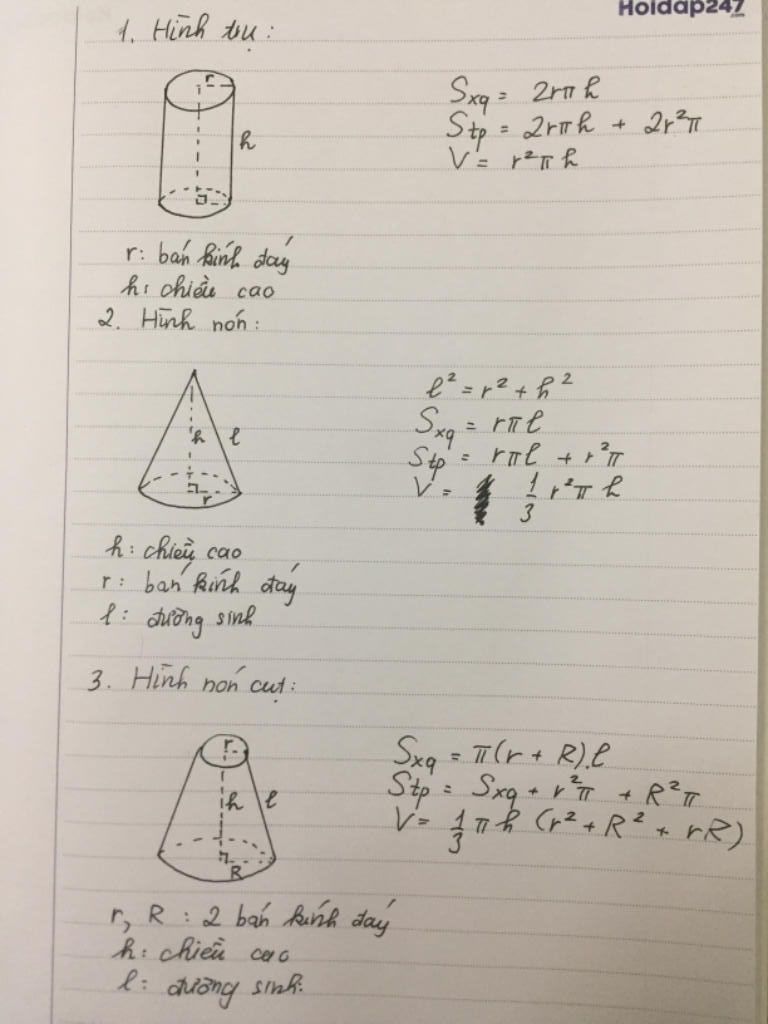 Hoidap247
.com
1. Hình trụ:
r
h
S_xq = 2rπh
S_tp = 2rπh + 2r²π
V = r²πh
r: bán kính đáy
h: chiều cao
2. Hình nón:
h l
r
l² = r² + h²
S_xq = rπl
S_tp = rπl + r²π
V = 1/3 r²πh
h: chiều cao
r: bán kính đáy
l: đường sinh
3. Hình nón cụt:
r
h l
R
S_xq = π(r + R).l
S_tp = S_xq + r²π + R²π
V = 1/3 πh (r² + R² + rR)
r, R : 2 bán kính đáy
h: chiều cao
l: đường sinh.